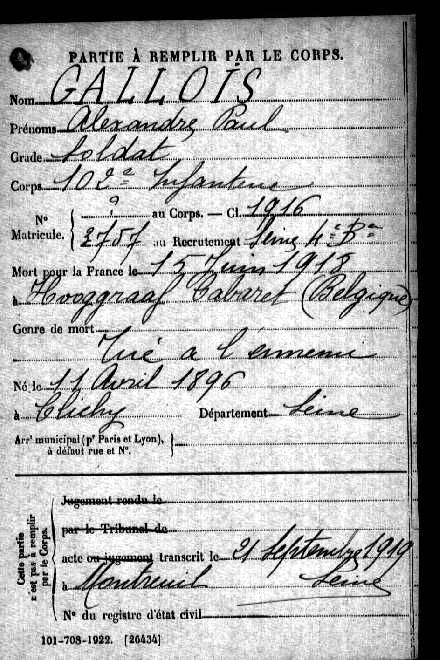 PARTIE À REMPLIR PAR LE CORPS.
Nom GALLOIS
Prénoms Alexandre Paul
Grade Soldat
Corps 102e Infanterie
N° Matricule. { ? au Corps. — Cl. 1916
2757 au Recrutement Seine 4e Bau
Mort pour la France le 15 Juin 1918
à Hooggraaf Cabaret (Belgique)
Genre de mort
Tué a l'ennemi
Né le 11 Avril 1896
à Clichy Département Seine
Arrt municipal (pr Paris et Lyon),
à défaut rue et N°.
Cette partie n'est pas à remplir par le Corps.
Jugement rendu le
par le Tribunal de
acte ou jugement transcrit le 21 Septembre 1919
à Montreuil Seine
N° du registre d'état civil
101-708-1922. [26434]